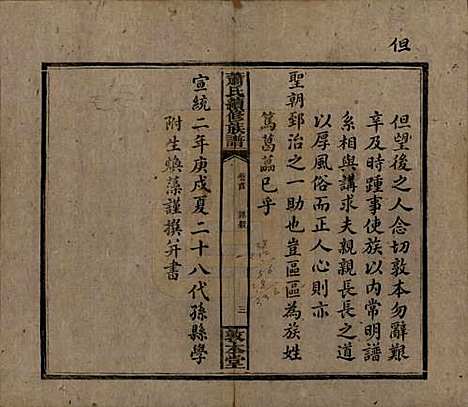 但
但望後之人念切敦本勿辭艱
辛及時踵事使族以內常明譜
系相與講求夫親親長長之道
以厚風俗而正人心則亦
聖朝郅治之一助也豈區區為族姓
篤葛藟已乎
蕭氏續修族譜
卷首
三
敦本堂
宣統二年庚戌夏二十八代孫縣學
附生煥藻謹撰并書